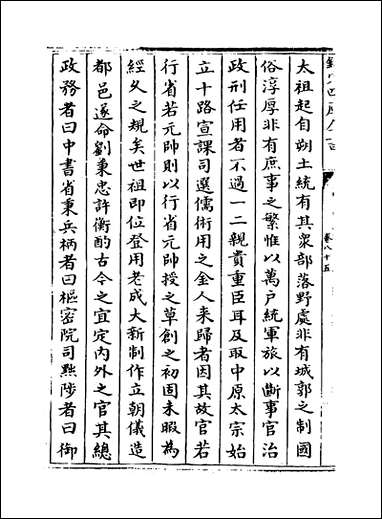 太祖起自朔土統有其衆部落野處非有城郭之制國
俗淳厚非有庶事之繁惟以萬戸統軍旅以斷事官治
政刑任用者不過一二親貴重臣耳及取中原太宗始
立十路宣課司選儒術用之金人来歸者因其故官若
行省若元帥則以行省元帥授之草創之初固未暇為
經久之規矣世祖即位登用老成大新制作立朝儀造
都邑遂命劉秉忠許衡酌古今之宜定内外之官其總
政務者曰中書省秉兵柄者曰樞密院司黜陟者曰御
卷八十五